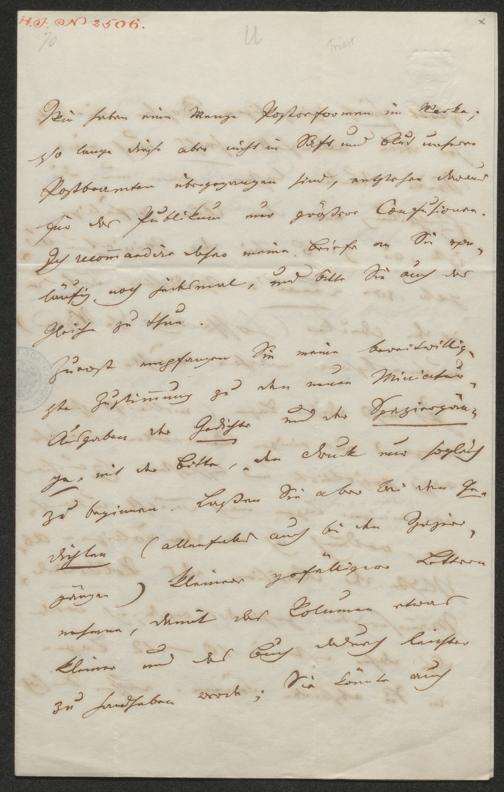 H.I.N. 2506.
Triest
Wir haben eine Menge Postreformen im Werke;
so lange diese aber nicht in Saft und Blut unserer
Postbeamten übergegangen sind, entstehen daraus
für das Publikum nur größere Confusionen.
Ich recommandire daher meine Briefe an Sie vor-
läufig noch jedesmal, und bitte Sie auch das
Gleiche zu thun.
Zuerst empfangen Sie meine bereitwillig-
ste Zustimmung zu den neuen Miniatur-
Ausgaben der Gedichte und der Spaziergän-
ge, mit der Bitte, den Druck nur sogleich
zu beginnen. Laßen Sie aber bei den Ge-
dichten (allenfalls auch bei den Spazier-
gängen) kleinere gefälligere Lettern
nehmen, damit das Volumen etwas
kleiner und das Buch dadurch leichter
zu handhaben werde; Sie könnten auch